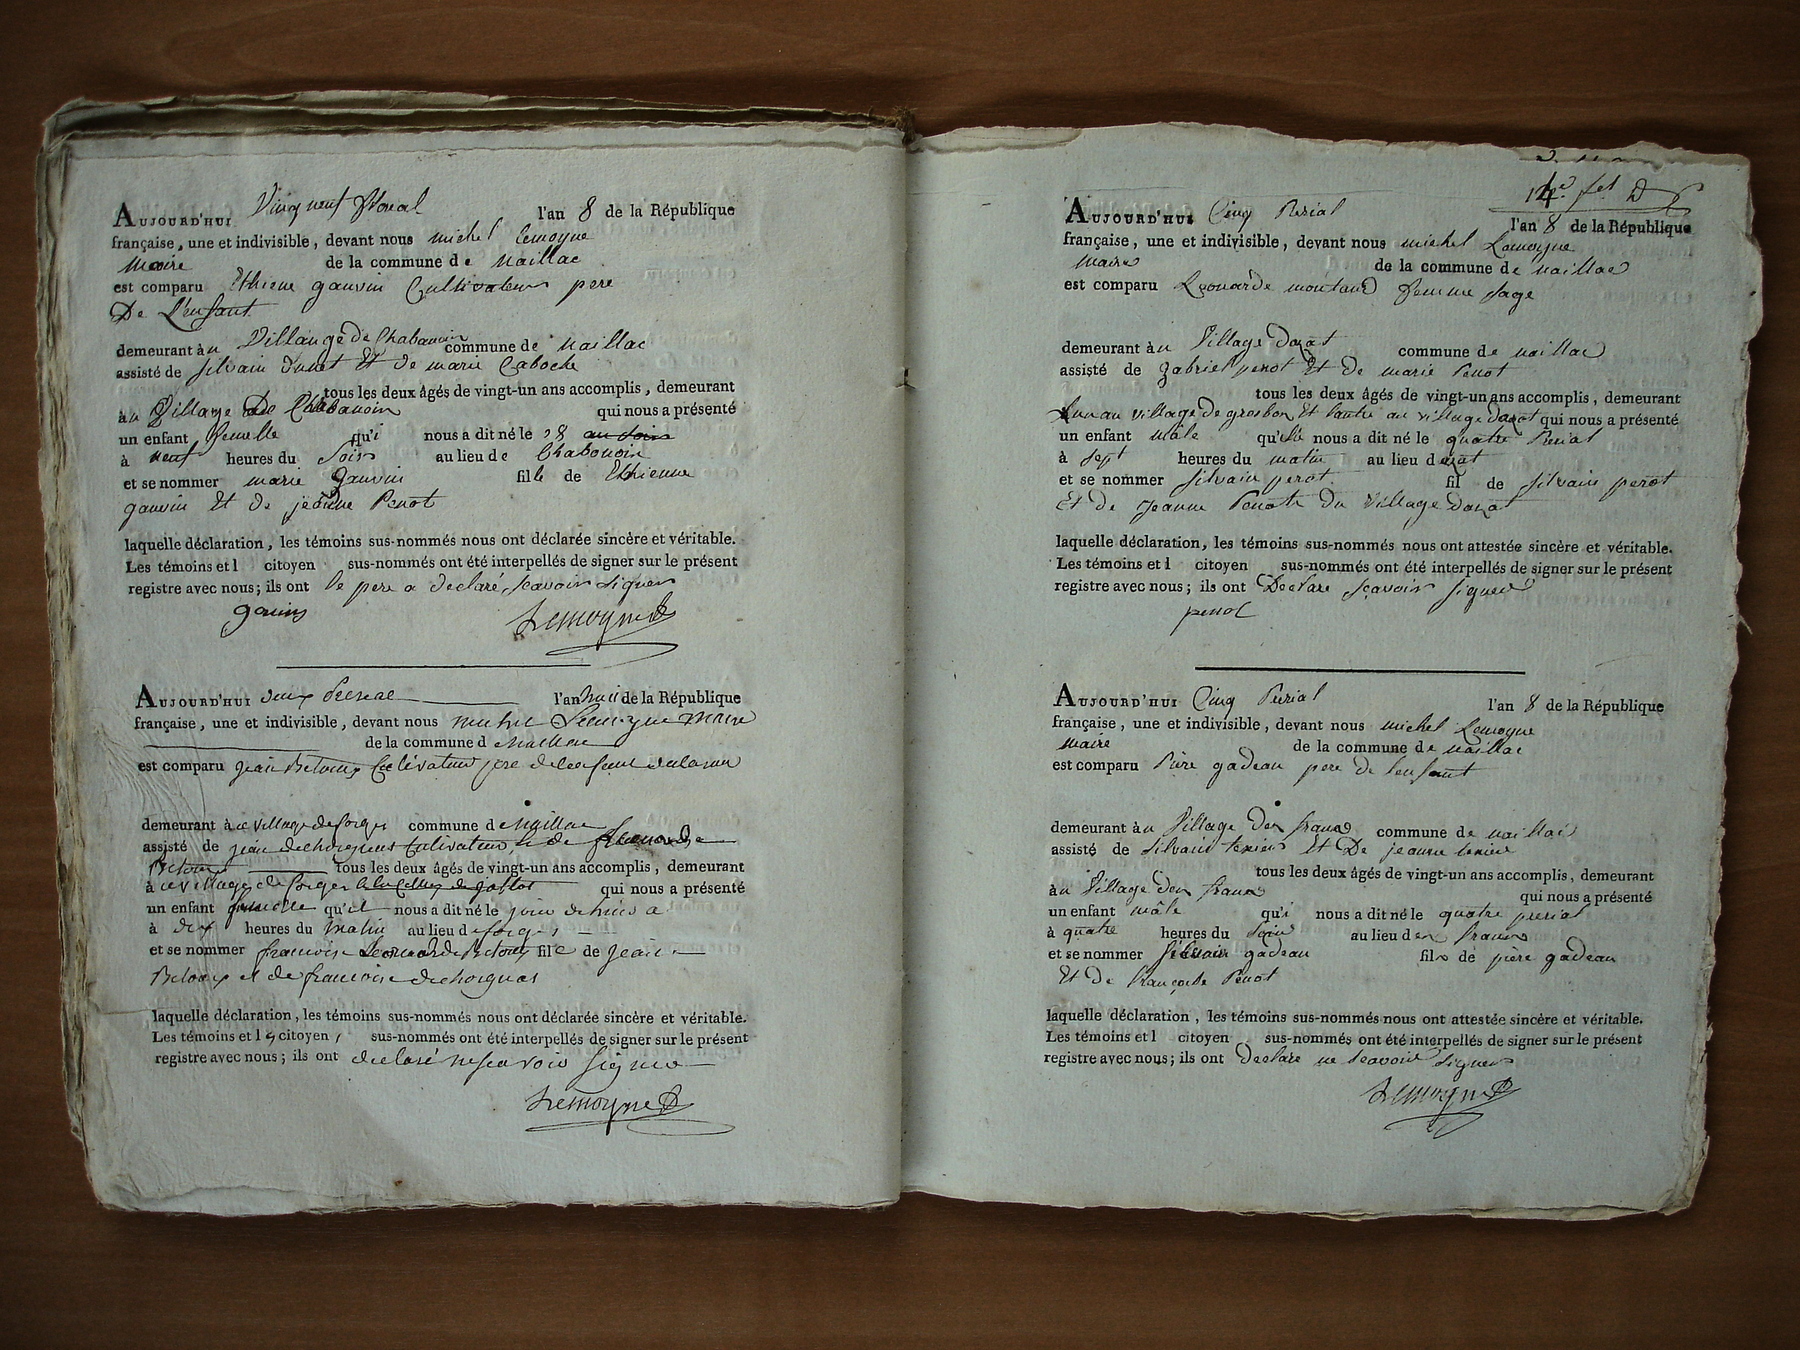 Aujourd'hui Vingt neuf floreal l'an 8 de la République
française, une et indivisible, devant nous michel Lemoyne
maire de la commune de naillac
est comparu Ethiene gauvin Cultivateur pere
De L'enfant
demeurant àu Villange de Chabanoin commune de naillac
assisté de silvain et de marie Caboche
tous les deux âgés de vingt-un ans accomplis, demeurant
àu Village De Chabanoin qui nous a présenté
un enfant femelle qu'i nous a dit né le 28 au soir
à neuf heures du soir au lieu de Chabonoin
et se nommer marie gauvin fille de Ethienne
gauvin Et de jeanne Penot
laquelle déclaration, les témoins sus-nommés nous ont déclarée sincère et véritable.
Les témoins et l citoyen sus-nommés ont été interpellés de signer sur le présent
registre avec nous; ils ont le pere a declaré scavoir signer
Lemoyne
Aujourd'hui deux l'an huit de la République
française, une et indivisible, devant nous Lemoyne maire
de la commune d naillac
est comparu jean Betoux Cultivateur pere de lenfant
demeurant àu village de forges commune d Naillac
assisté de jean dechorgnas Cultivateur, et de
Betoux tous les deux âgés de vingt-un ans accomplis, demeurant
àu village de forges qui nous a présenté
un enfant femelle qu'il nous a dit né le
à dix heures du matin au lieu de forges
et se nommer francoise Leonarde Betoux fille de jean
Betoux et de francoise dechorgnas
laquelle déclaration, les témoins sus-nommés nous ont déclarée sincère et véritable.
Les témoins et les citoyen, sus-nommés ont été interpellés de signer sur le présent
registre avec nous; ils ont declaré ne scavoir signer
Lemoyne
Aujourd'hui Cinq Perial l'an 8 de la République
française, une et indivisible, devant nous michel Lemoyne
maire de la commune de naillac
est comparu Leonarde montand femme sage
demeurant àu Village dazat commune de naillac
assisté de gabriel perot Et de marie Penot
tous les deux âgés de vingt-un ans accomplis, demeurant
Lun au village de grosbon Et lautre au village dazat qui nous a présenté
un enfant mâle qu'elle nous a dit né le quatre Perial
à sept heures du matin au lieu dazat
et se nommer silvain perot fil de silvain perot
Et de jeanne Penot du Village dazat
laquelle déclaration, les témoins sus-nommés nous ont attestée sincère et véritable.
Les témoins et l citoyen sus-nommés ont été interpellés de signer sur le présent
registre avec nous; ils ont Declare scavoir signer
penot
Aujourd'hui Cinq Perial l'an 8 de la République
française, une et indivisible, devant nous michel Lemoyne
maire de la commune de naillac
est comparu Piere gadeau pere de lenfant
demeurant àu Village des frans commune de naillac
assisté de silvain texier Et De jeanne
tous les deux âgés de vingt-un ans accomplis, demeurant
àu Village des frans qui nous a présenté
un enfant mâle qu'i nous a dit né le quatre perial
à quatre heures du soir au lieu des frans
et se nommer silvain gadeau fils de piere gadeau
Et de françoise Penot
laquelle déclaration, les témoins sus-nommés nous ont attestée sincère et véritable.
Les témoins et l citoyen sus-nommés ont été interpellés de signer sur le présent
registre avec nous; ils ont declare ne scavoir signer
Lemoyne